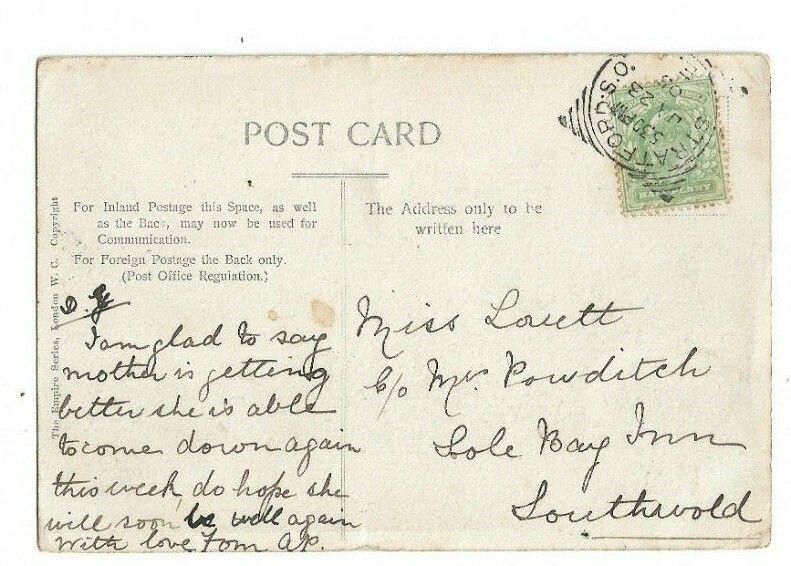 POST CARD
For Inland Postage this Space, as well
as the Back, may now be used for
Communication.
For Foreign Postage the Back only.
(Post Office Regulation.)
The Address only to be
written here
The Empire Series, London W. C. Copyright
STRATFORD.S.O.
5.30PM
JY 23
HALFPENNY
I am glad to say
mother is getting
better she is able
to come down again
this week, do hope she
will soon be well again
With love from AP.
Miss Lovett
c/o Mrs Powditch
Sole Bay Inn
Southwold